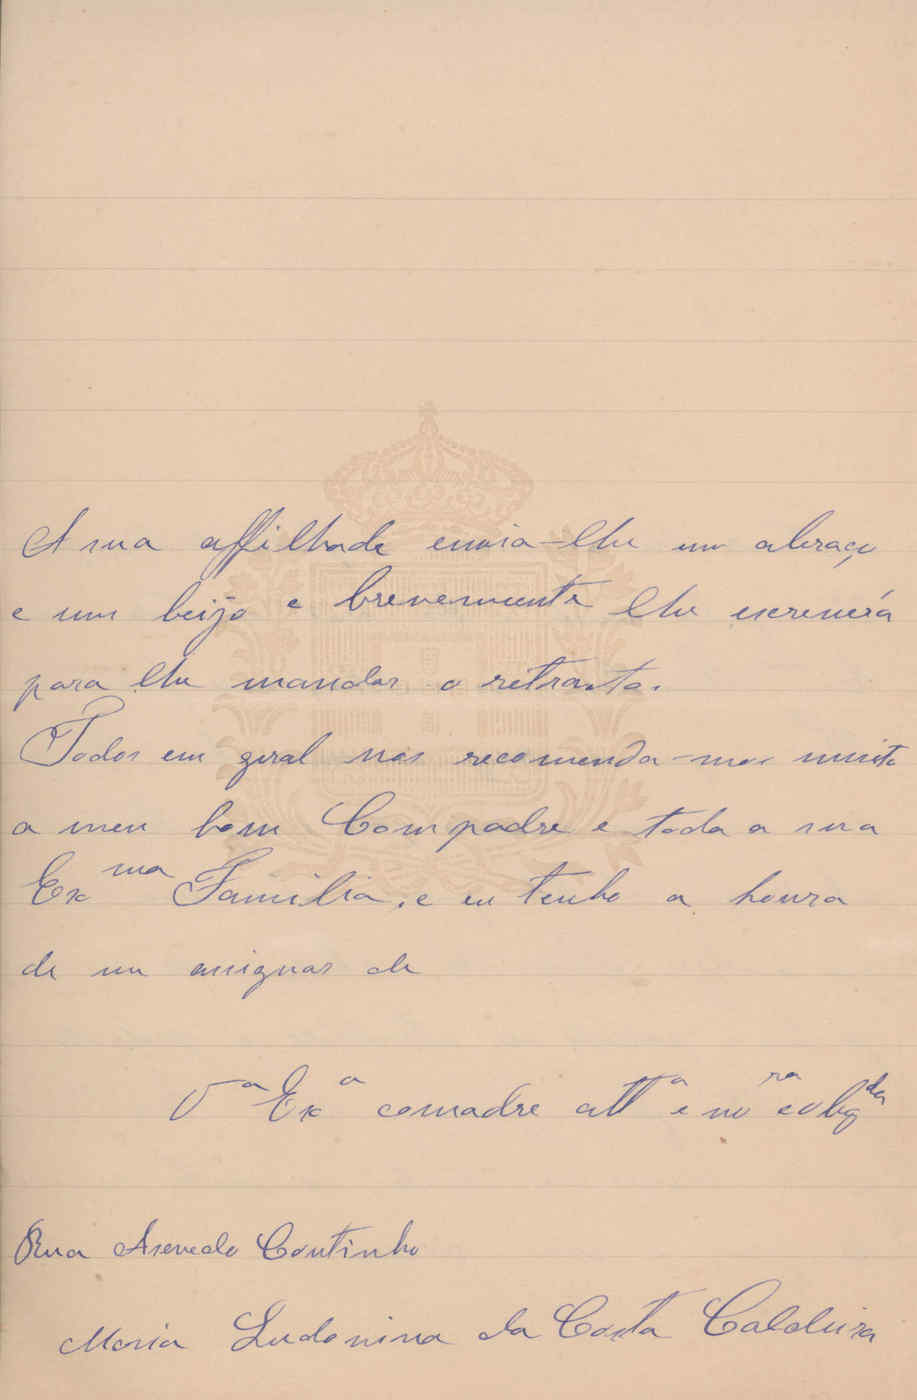 A sua affilhada envia-lhe um abraço
e um beijo e brevemente lhe escreverá
para lhe mandar o retrato.
Todos em geral nos recomenda-mos muito
a meu bom Compadre e toda a sua
Ex^ma Familia, e eu tenho a honra
de me assignar de
V^a Ex^a comadre att^a e v^ra e obg^da
Rua Asevedo Coutinho
Maria Ludovina da Costa Caldeira